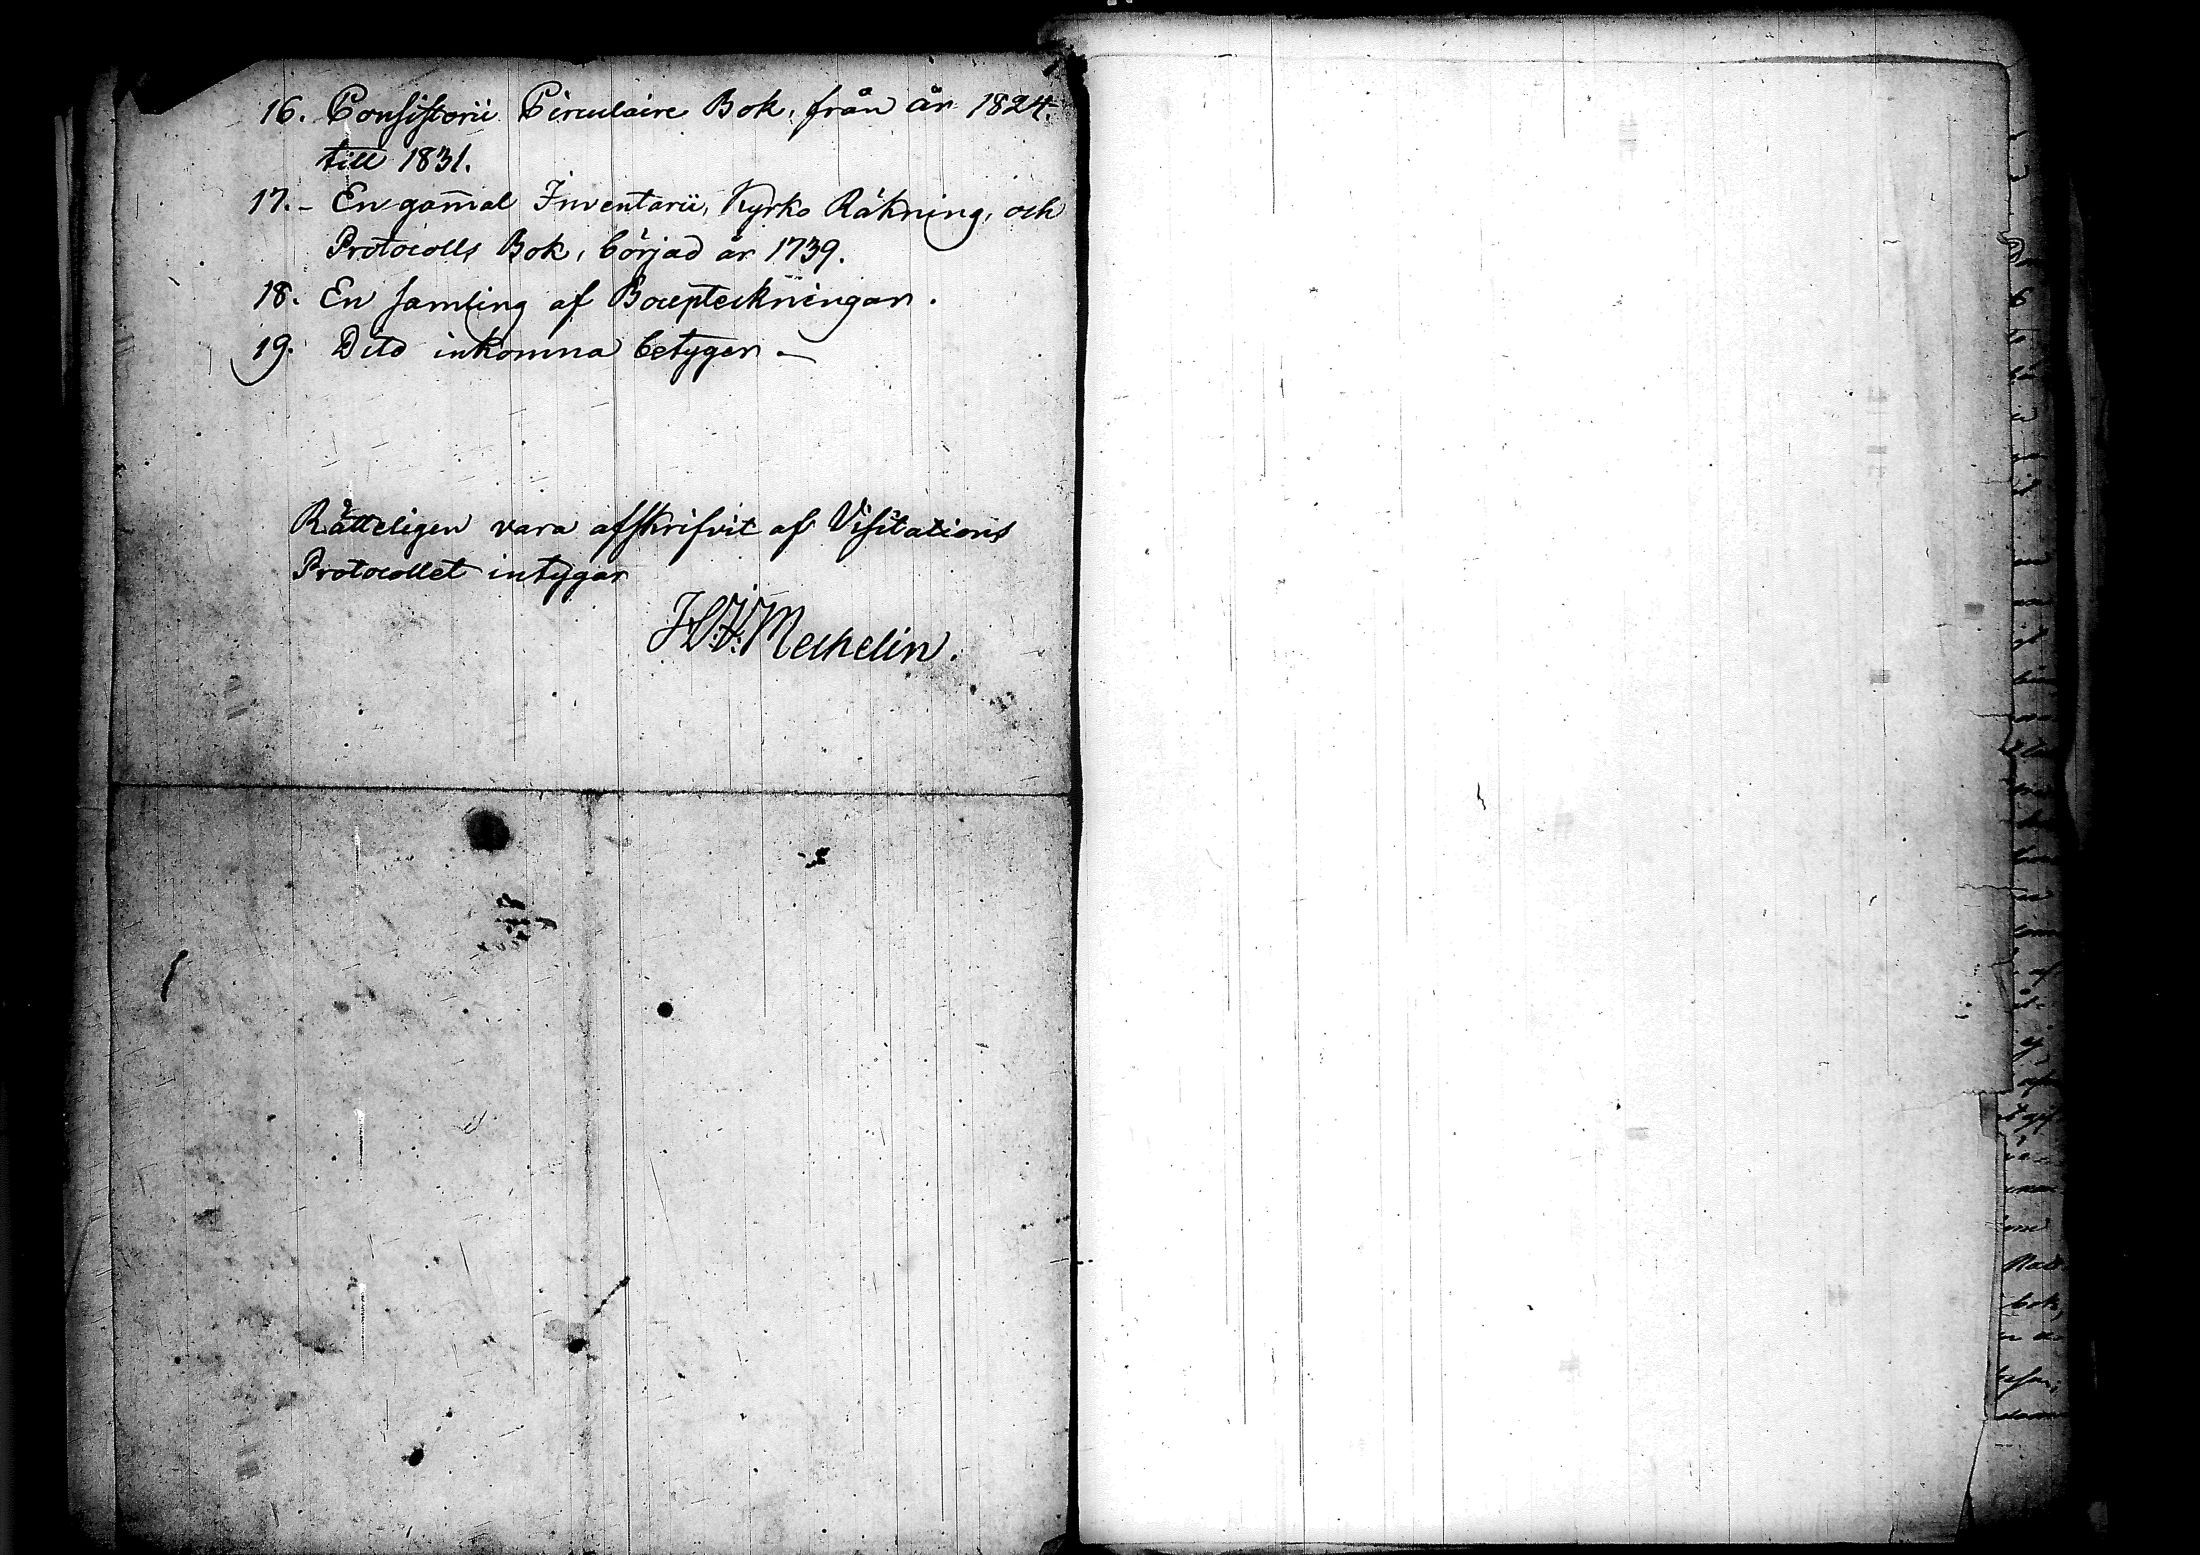 16. Consistorii Circulaire Bok, från år 1824.
till 1831.
17. - En gam̄al Inventarii, Kyrko Räkning, och
Protocolls Bok, börjad år 1739.
18. En samling af Boupteckningar.
19. Dito inkomna betyger. —
Rätteligen vara afskrifvit af Visitations
Protocollet intygar
Mechelin.